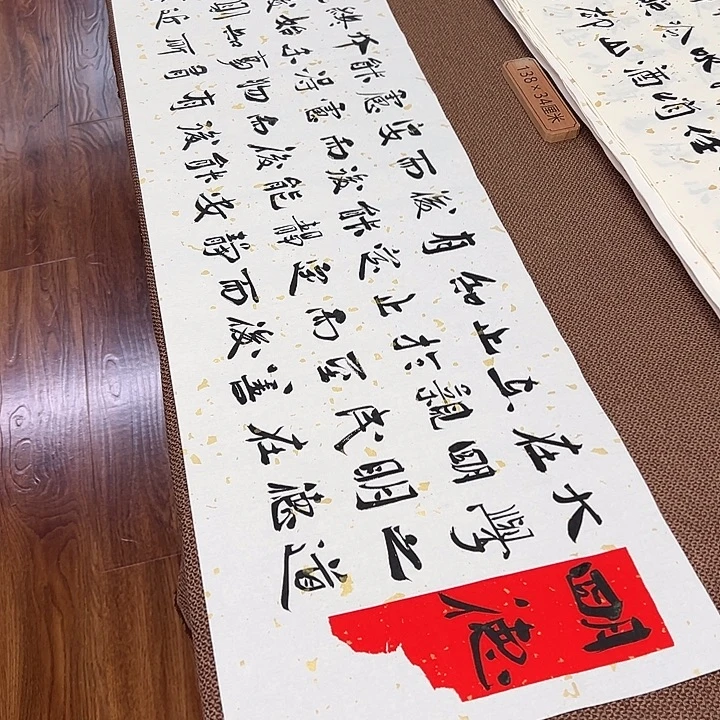 138×34厘米
明德
大學之道
在明明德
在親民在
止於至善
知止而後
有定定而
後能靜靜
而後能安
安而後能
慮慮而後
能得物有
本末事有
終始知所
後則近